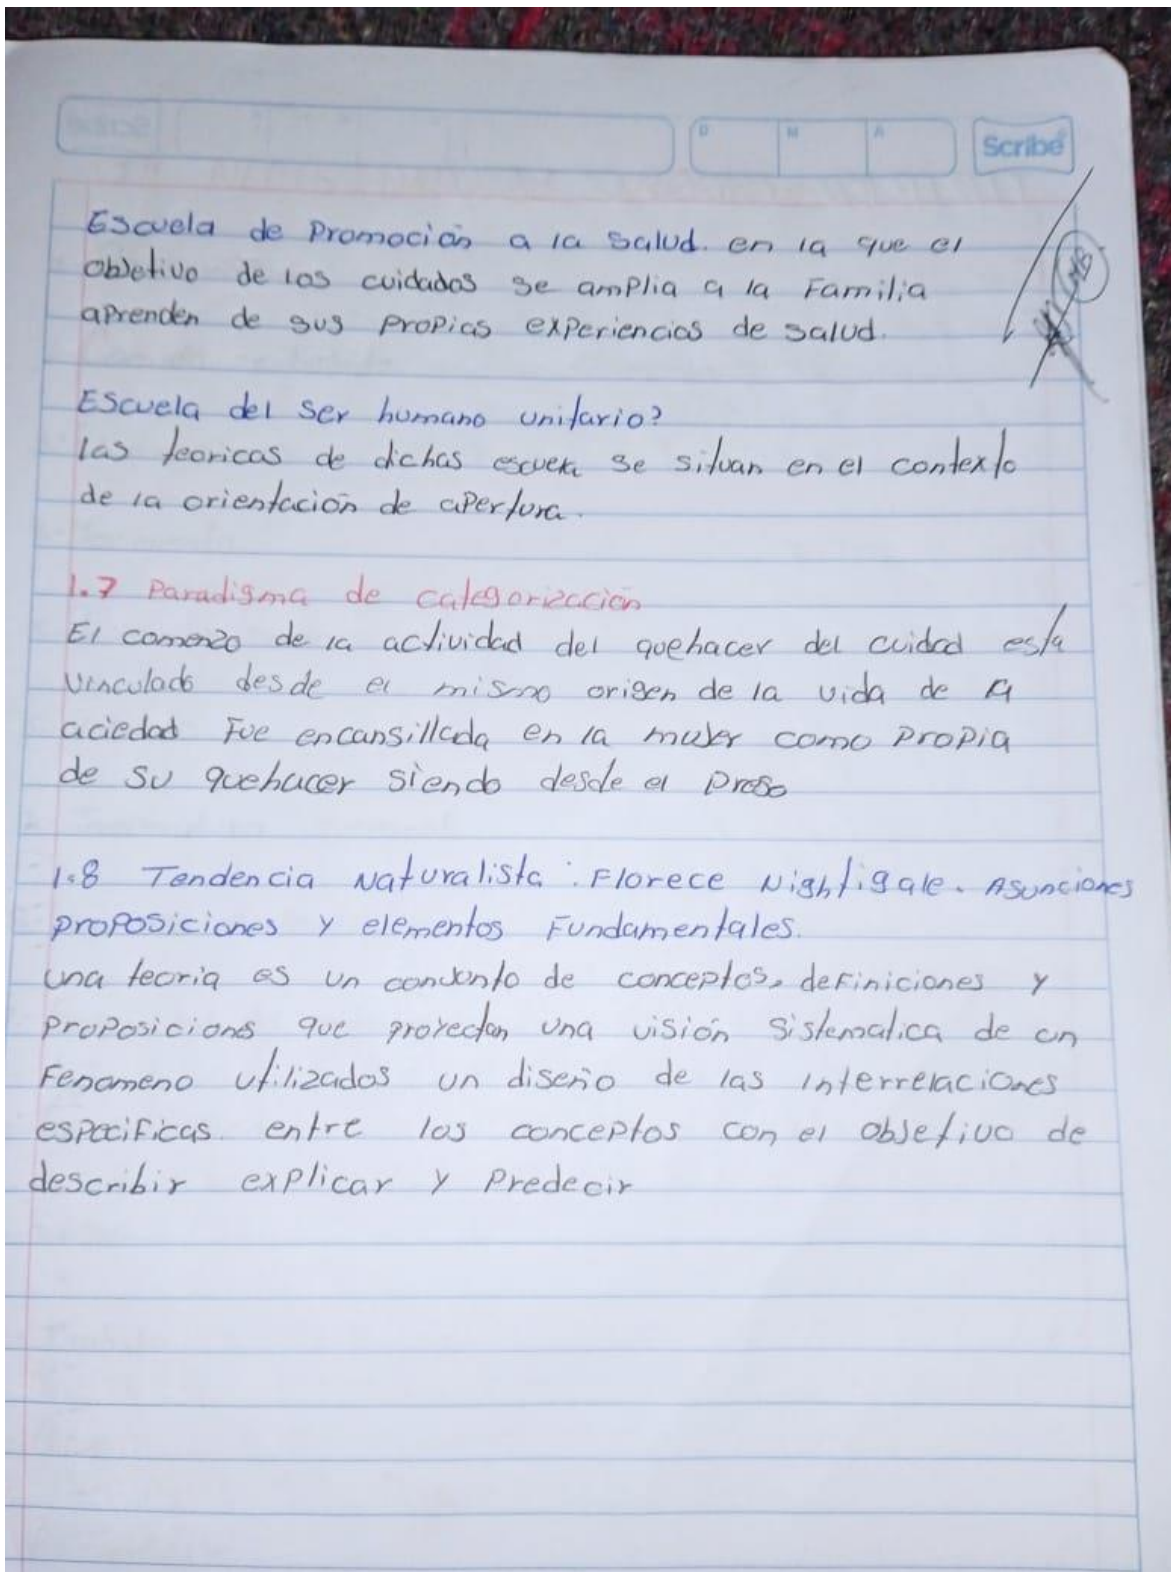 D M A Scribe
Escuela de Promoción a la salud. en la que el
objetivo de los cuidados se amplia a la Familia
aprenden de sus propias experiencias de salud.
Escuela del ser humano unitario?
las teoricas de dichas escuela se situan en el contexto
de la orientación de apertura.
1.7 Paradigma de categorización
El comenzo de la actividad del quehacer del cuidad esta
vinculado desde el mismo origen de la vida de la
aciedad Fue encansillada en la mujer como propia
de su quehacer siendo desde el
1.8 Tendencia Naturalista: Florece Nightigale. Asunciones
proposiciones y elementos Fundamentales.
una teoria es un conjunto de conceptos, definiciones y
proposiciones que proyectan una visión sistematica de un
Fenomeno utilizados un diseño de las interrelaciones
especificas entre los conceptos con el objetivo de
describir explicar y Predecir